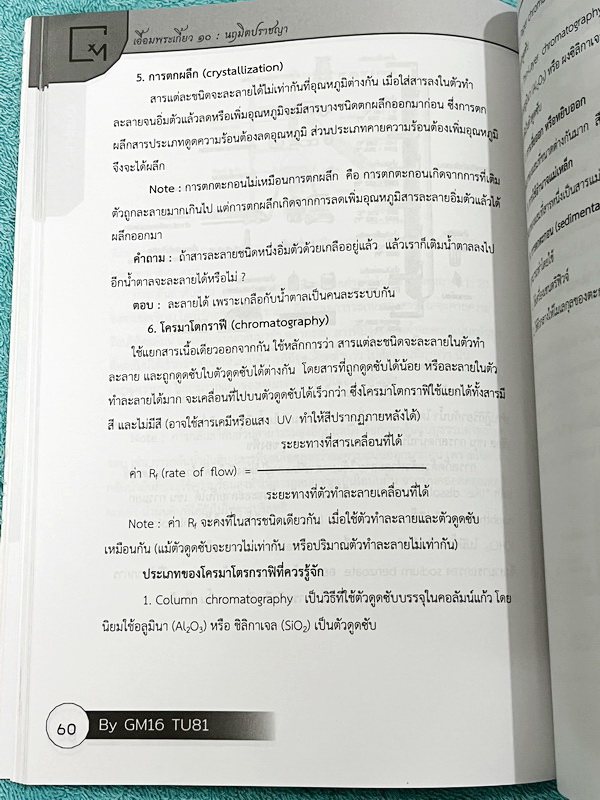 เอื้อมพระเกี้ยว ๑๐ : นฤมิตปราชญา
5. การตกผลึก (crystallization)
สารแต่ละชนิดจะละลายได้ไม่เท่ากันที่อุณหภูมิต่างกัน เมื่อใส่สารลงในตัวทำ
ละลายจนอิ่มตัวแล้วลดหรือเพิ่มอุณหภูมิจะมีสารบางชนิดตกผลึกออกมาก่อน ซึ่งการตก
ผลึกสารประเภทดูดความร้อนต้องลดอุณหภูมิ ส่วนประเภทคายความร้อนต้องเพิ่มอุณหภูมิ
จึงจะได้ผลึก
Note : การตกตะกอนไม่เหมือนการตกผลึก คือ การตกตะกอนเกิดจากการที่เติม
ตัวถูกละลายมากเกินไป แต่การตกผลึกเกิดจากการลดเพิ่มอุณหภูมิสารละลายอิ่มตัวแล้วได้
ผลึกออกมา
คำถาม : ถ้าสารละลายชนิดหนึ่งอิ่มตัวด้วยเกลืออยู่แล้ว แล้วเราก็เติมน้ำตาลลงไป
อีกน้ำตาลจะละลายได้หรือไม่ ?
ตอบ : ละลายได้ เพราะเกลือกับน้ำตาลเป็นคนละระบบกัน
6. โครมาโตกราฟี (chromatography)
ใช้แยกสารเนื้อเดียวออกจากกัน ใช้หลักการว่า สารแต่ละชนิดจะละลายในตัวทำ
ละลาย และถูกดูดซับใบตัวดูดซับได้ต่างกัน โดยสารที่ถูกดูดซับได้น้อย หรือละลายในตัว
ทำละลายได้มาก จะเคลื่อนที่ไปบนตัวดูดซับได้เร็วกว่า ซึ่งโครมาโตกราฟีใช้แยกได้ทั้งสารมี
สี และไม่มีสี (อาจใช้สารเคมีหรือแสง UV ทำให้สีปรากฏภายหลังได้)
ระยะทางที่สารเคลื่อนที่ได้
ค่า Rf (rate of flow) =
ระยะทางที่ตัวทำละลายเคลื่อนที่ได้
Note : ค่า Rf จะคงที่ในสารชนิดเดียวกัน เมื่อใช้ตัวทำละลายและตัวดูดซับ
เหมือนกัน (แม้ตัวดูดซับจะยาวไม่เท่ากัน หรือปริมาณตัวทำละลายไม่เท่ากัน)
ประเภทของโครมาโตรกราฟีที่ควรรู้จัก
1. Column chromatography เป็นวิธีที่ใช้ตัวดูดซับบรรจุในคอลัมน์แก้ว โดย
นิยมใช้อลูมินา (Al₂O₃) หรือ ซิลิกาเจล (SiO₂) เป็นตัวดูดซับ
60 By GM16 TU81